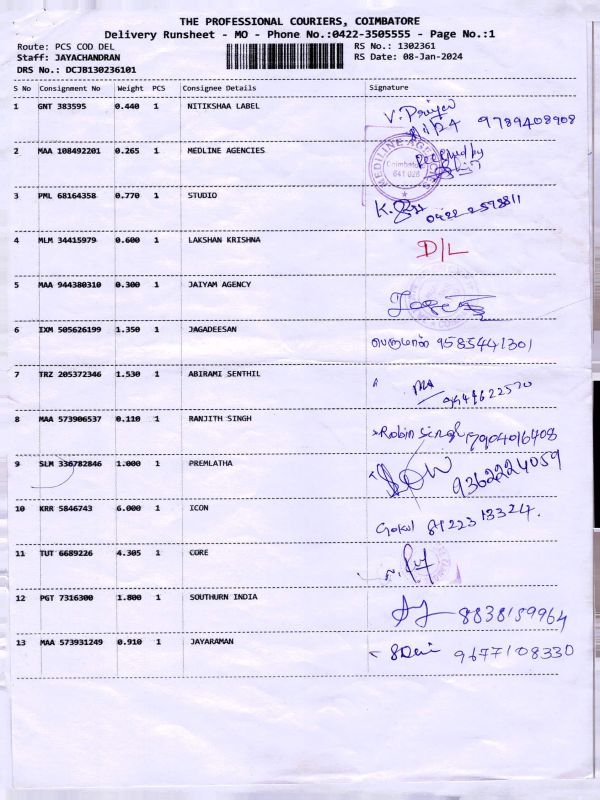 THE PROFESSIONAL COURIERS, COIMBATORE
Delivery Runsheet - MO - Phone No.:0422-3505555 - Page No.:1
Route: PCS COD DEL RS No.: 1302361
Staff: JAYACHANDRAN RS Date: 08-Jan-2024
DRS No.: DCJB130236101
S No Consignment No Weight PCS Consignee Details Signature
1 GNT 383595 0.440 1 NITIKSHAA LABEL V. Priya
9789408908
2 MAA 108492201 0.265 1 MEDLINE AGENCIES Received by
MEDILINE AGENCIES Coimbatore 641 028
3 PML 68164358 0.770 1 STUDIO K.
0422 2598811
4 MLM 34415979 0.600 1 LAKSHAN KRISHNA D/L
5 MAA 944380310 0.300 1 JAIYAM AGENCY
6 IXM 505626199 1.350 1 JAGADEESAN பெருமாள் 9585441301
7 TRZ 205372346 1.530 1 ABIRAMI SENTHIL
8 MAA 573906537 0.110 1 RANJITH SINGH Robin Singh 7904016408
9 SLM 336782846 1.000 1 PREMLATHA 9362224059
10 KRR 5846743 6.000 1 ICON Gokul 81223 13324.
11 TUT 6689226 4.305 1 CORE
12 PGT 7316300 1.800 1 SOUTHURN INDIA 8838159964
13 MAA 573931249 0.910 1 JAYARAMAN 9677108330